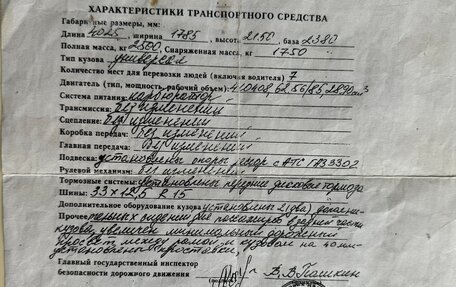 ХАРАКТЕРИСТИКИ ТРАНСПОРТНОГО СРЕДСТВА
Габаритные размеры, мм:
Длина 4025, ширина 1785, высот. 2150, база 2380
Полная масса, кг 2500, Снаряженная масса, кг 1750
Тип кузова универсал
Количество мест для перевозки людей (включая водителя) 7
Двигатель (тип, мощность, рабочий объем):
Система питания: карбюратор
Трансмиссия: без изменений
Сцепление: без изменений
Коробка передач: без изменений
Главная передача: без изменений
Подвеска: установлены опоры рессор с АТС ГАЗ 3302
Рулевой механизм: без изменений
Тормозные системы: установлены передние дисковые тормоза
Шины: 33 x 12,5 R 15
Дополнительное оборудование кузова установлены 2 (два) дополни-
Прочее тельных сидения для пассажиров в задней части
кузова, увеличен минимальный дорожный
просвет, между рамой и кузовом на 40 мм
установлены проставки,
Главный государственный инспектор
безопасности дорожного движения